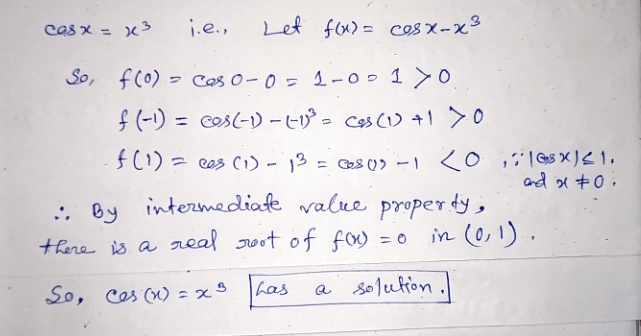 cos x = x³ i.e., Let f(x) = cos x - x³
So, f(0) = cos 0 - 0 = 1 - 0 = 1 > 0
f(-1) = cos(-1) - (-1)³ = cos(1) + 1 > 0
f(1) = cos(1) - 1³ = cos(1) - 1 < 0 , ∵ |cos x| ≤ 1.
and x ≠ 0.
∴ By intermediate value property,
there is a real root of f(x) = 0 in (0, 1).
So, cos(x) = x³ has a solution.